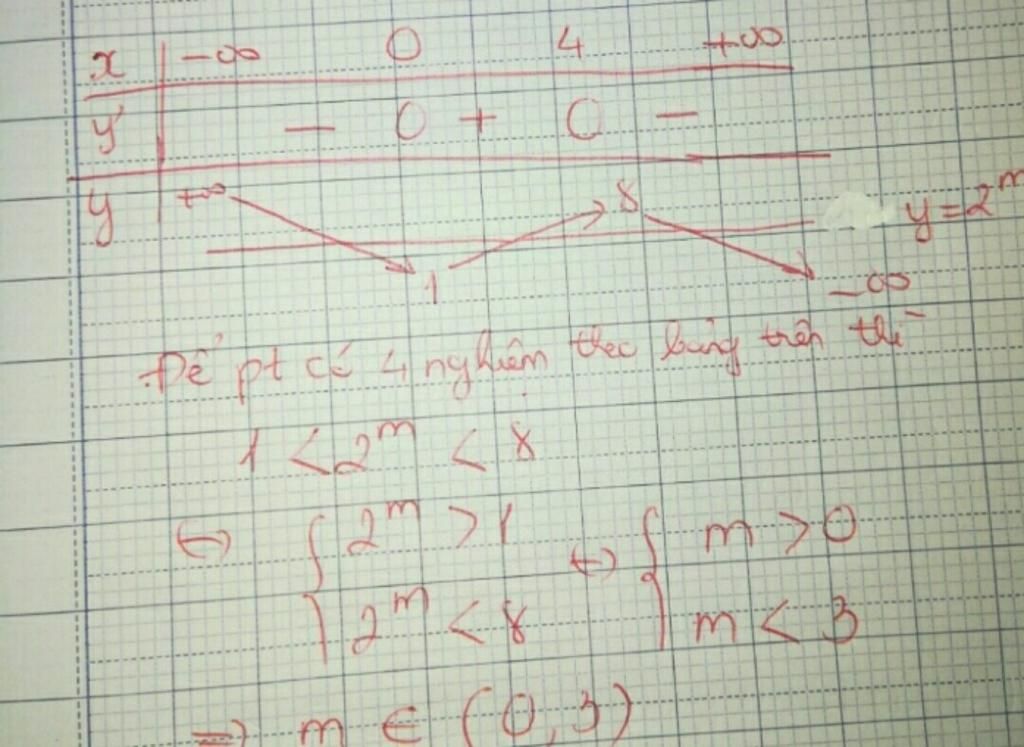 x -∞ 0 4 +∞
y' - 0 + 0 -
y +∞ 1 8 -∞ y = 2^m
Để pt có 4 nghiệm theo bảng trên thì
1 < 2^m < 8
↔ { 2^m > 1 ↔ { m > 0
2^m < 8 m < 3
⇒ m ∈ (0,3)